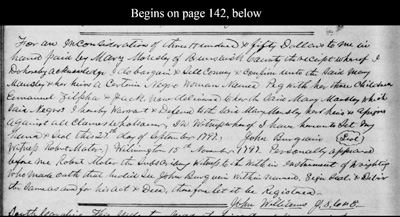 Begins on page 142, below
For an In consideration of three Hundred & fifty Dollars to me in
hand paid by Mary Moresley of Brunswick County the receipt where of I
Do hereby acknowledge I do bargain & Sell Convey & Confirm unto the Said Mary
Mousley & her heirs a Certain Negro Woman Named Peg with her three Children
Emmanuel Zilpha & Jack now delivered to her the Said Mary Mousley which
Said Negroes I hereby Warrant & Defend unto Said Mary Mousley her heirs & assigns
Against all Claims whatsoever, In Witness whereof I have hereunto set my
Hand & Seal this 27 day of September 1797. John Burgwin (Seal)
Witness Robt Muter) Wilmington 15th November 1797. Personally appeared
before me Robert Muter the Subscribing witness to the within instrument of writing
Who made oath that he did See John Burgwin within named Sign Seal & Deliver
the Same as and for his act & Deed, therefore let it be Registered.
John Williams J.S.L & E